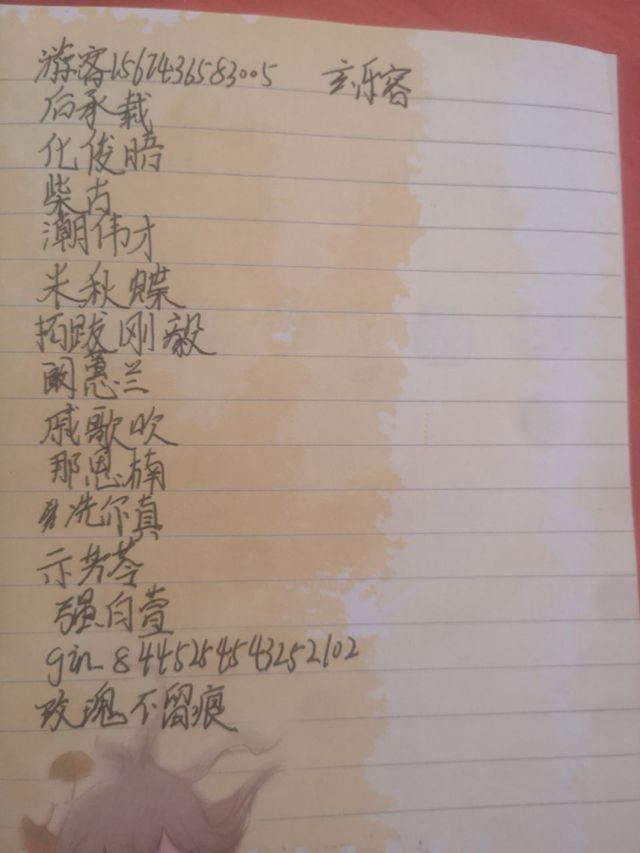 游客1567436583005 玄乐容
后承载
化俊晤
柴古
潮伟才
米秋蝶
拓跋刚毅
阚蕙兰
戚歌吹
那恩楠
冼尔真
示芳苓
强白萱
gin_8445254543252102
玫瑰不留痕